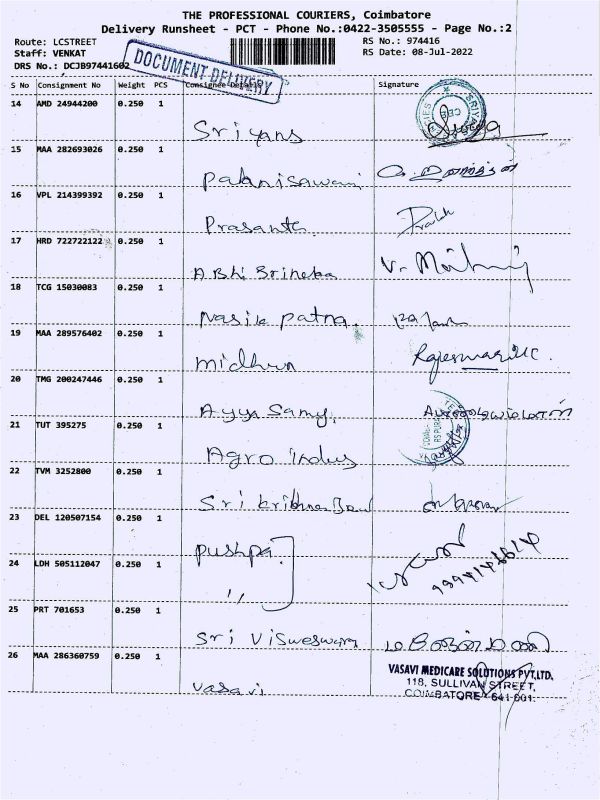 THE PROFESSIONAL COURIERS, Coimbatore
Delivery Runsheet - PCT - Phone No.:0422-3505555 - Page No.:2
Route: LCSTREET RS No.: 974416
Staff: VENKAT RS Date: 08-Jul-2022
DRS No.: DCJB97441602
DOCUMENT DELIVERY
S No Consignment No Weight PCS Consignee Details Signature
14 AMD 24944200 0.250 1
Sriyans
15 MAA 282693026 0.250 1
Palanisawami
16 VPL 214399392 0.250 1
Prasanth
17 HRD 722722122 0.250 1
ABhi Srineka
18 TCG 15030083 0.250 1
Nasik patna
19 MAA 289576402 0.250 1
midhun
20 TMG 200247446 0.250 1
Ayya Samy
21 TUT 395275 0.250 1
Agro indus
22 TVM 3252800 0.250 1
Sri krishna
23 DEL 120507154 0.250 1
pushpa
24 LDH 505112047 0.250 1
"
25 PRT 701653 0.250 1
Sri Visweswara
26 MAA 286360759 0.250 1
Vasavi
VASAVI MEDICARE SOLUTIONS PVT.LTD.
118, SULLIVAN STREET,
COIMBATORE - 641 001.